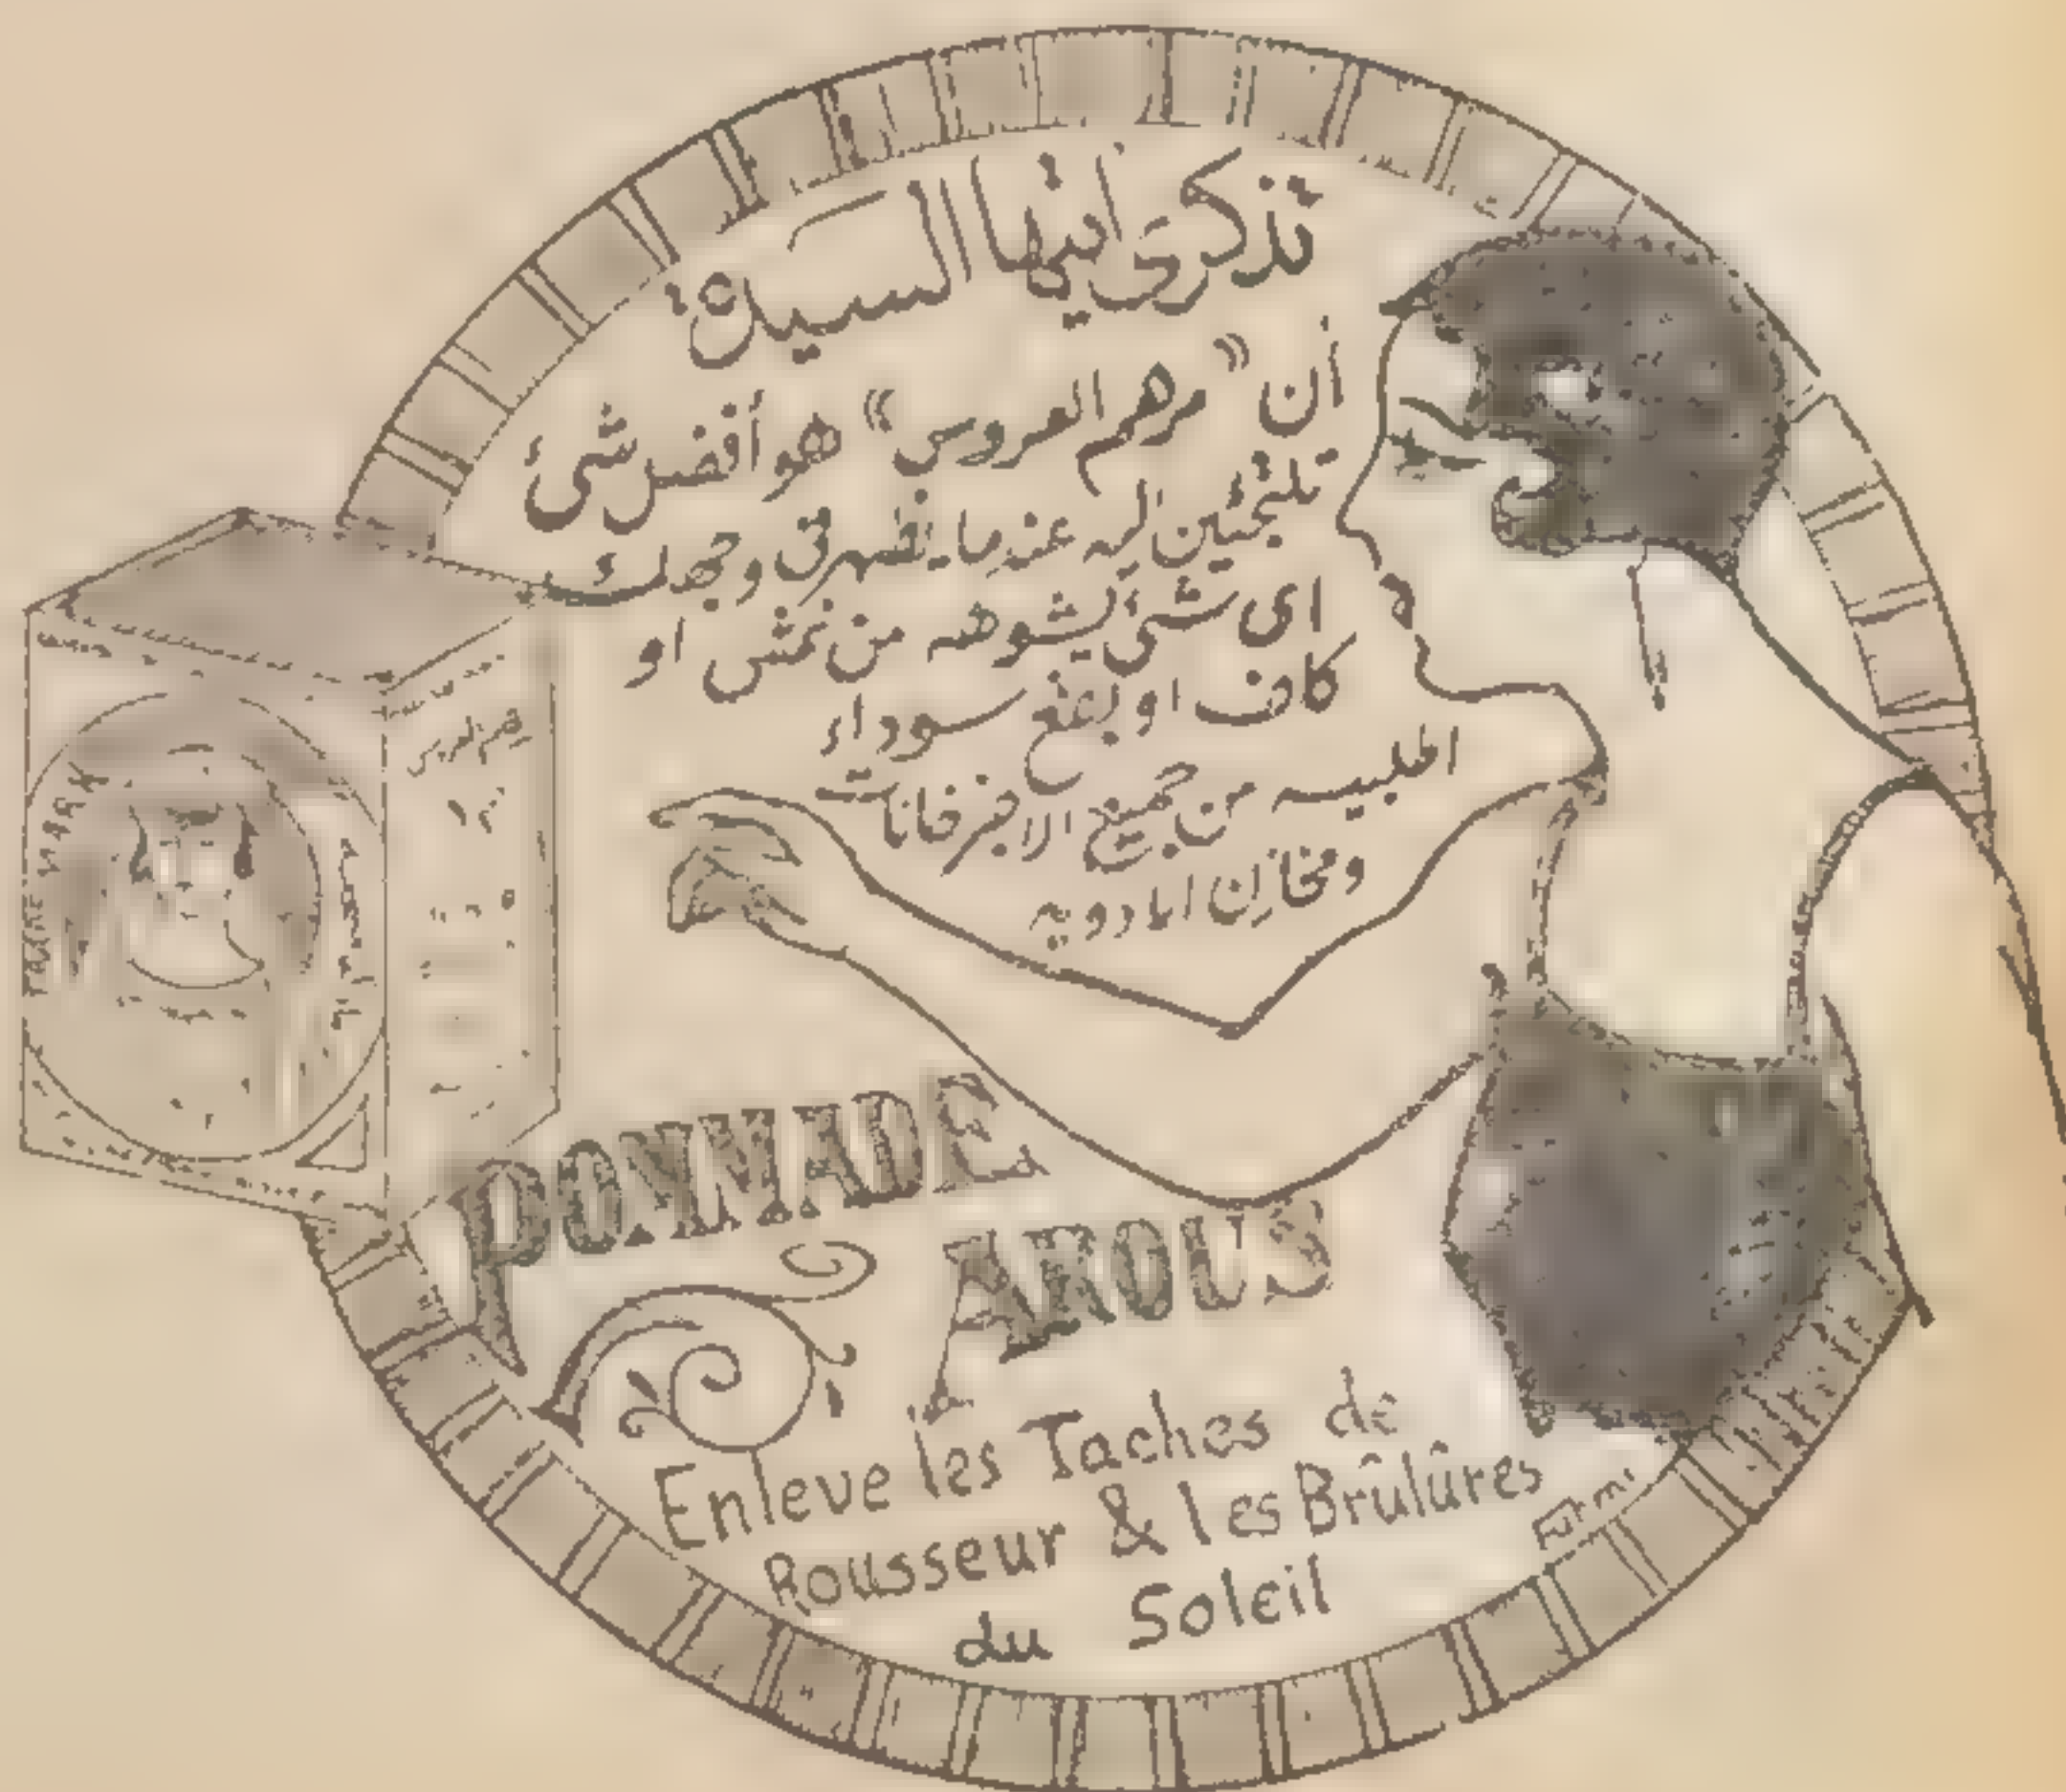 تذكرى ايتها السيدة
أن "مرهم العروس" هو أفضل شئ
تلتجئين اليه عندما يظهر في وجهك
اى شئ يشوهه من نمش او
كلف او بقع سوداء
اطلبيه من جميع الاجزخانات
ومخازن الادويه
مرهم العروس
TRADE MARK
POMMADE
AROUS
Enleve les Taches de
Rousseur & les Brûlûres
du Soleil